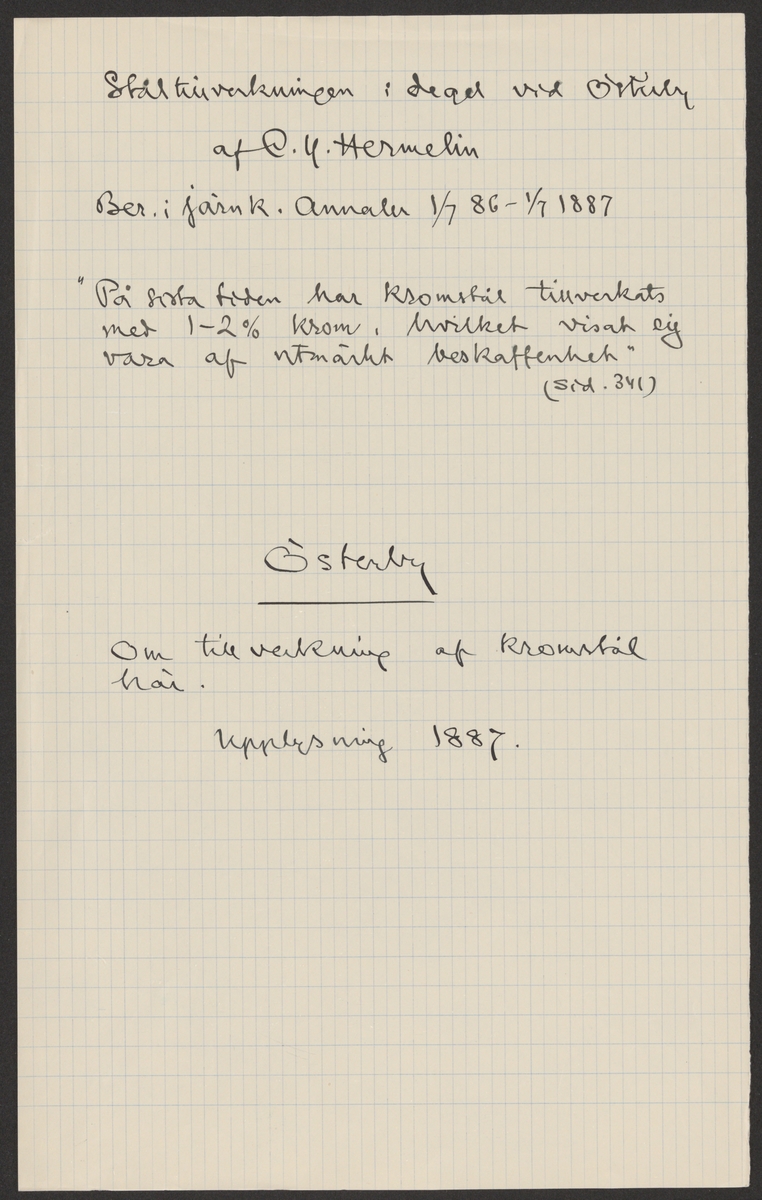 Ståltillverkningen i degel vid Österby
af C. Y. Hermelin
Ber. i järnk. Annaler 1/7 86 – 1/7 1887
"På sista tiden har kromstål tillverkats
med 1–2% krom, hvilket visat sig
vara af utmärkt beskaffenhet"
(sid. 341)
Österby
Om tillverkning af kromstål
här.
Upplysning 1887.